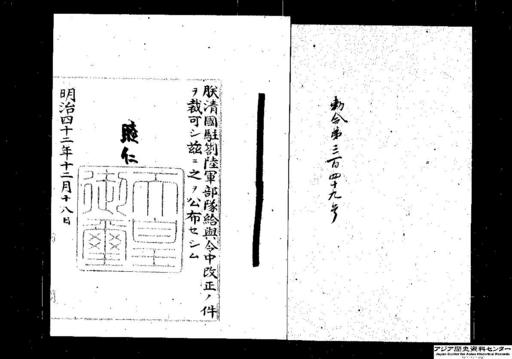 勅令第三百四十九号
朕清國駐劄陸軍部隊給與令中改正ノ件
ヲ裁可シ茲ニ之ヲ公布セシム
睦仁
天皇
御璽
明治四十二年十二月十八日
アジア歴史資料センター
Japan Center for Asian Historical Records